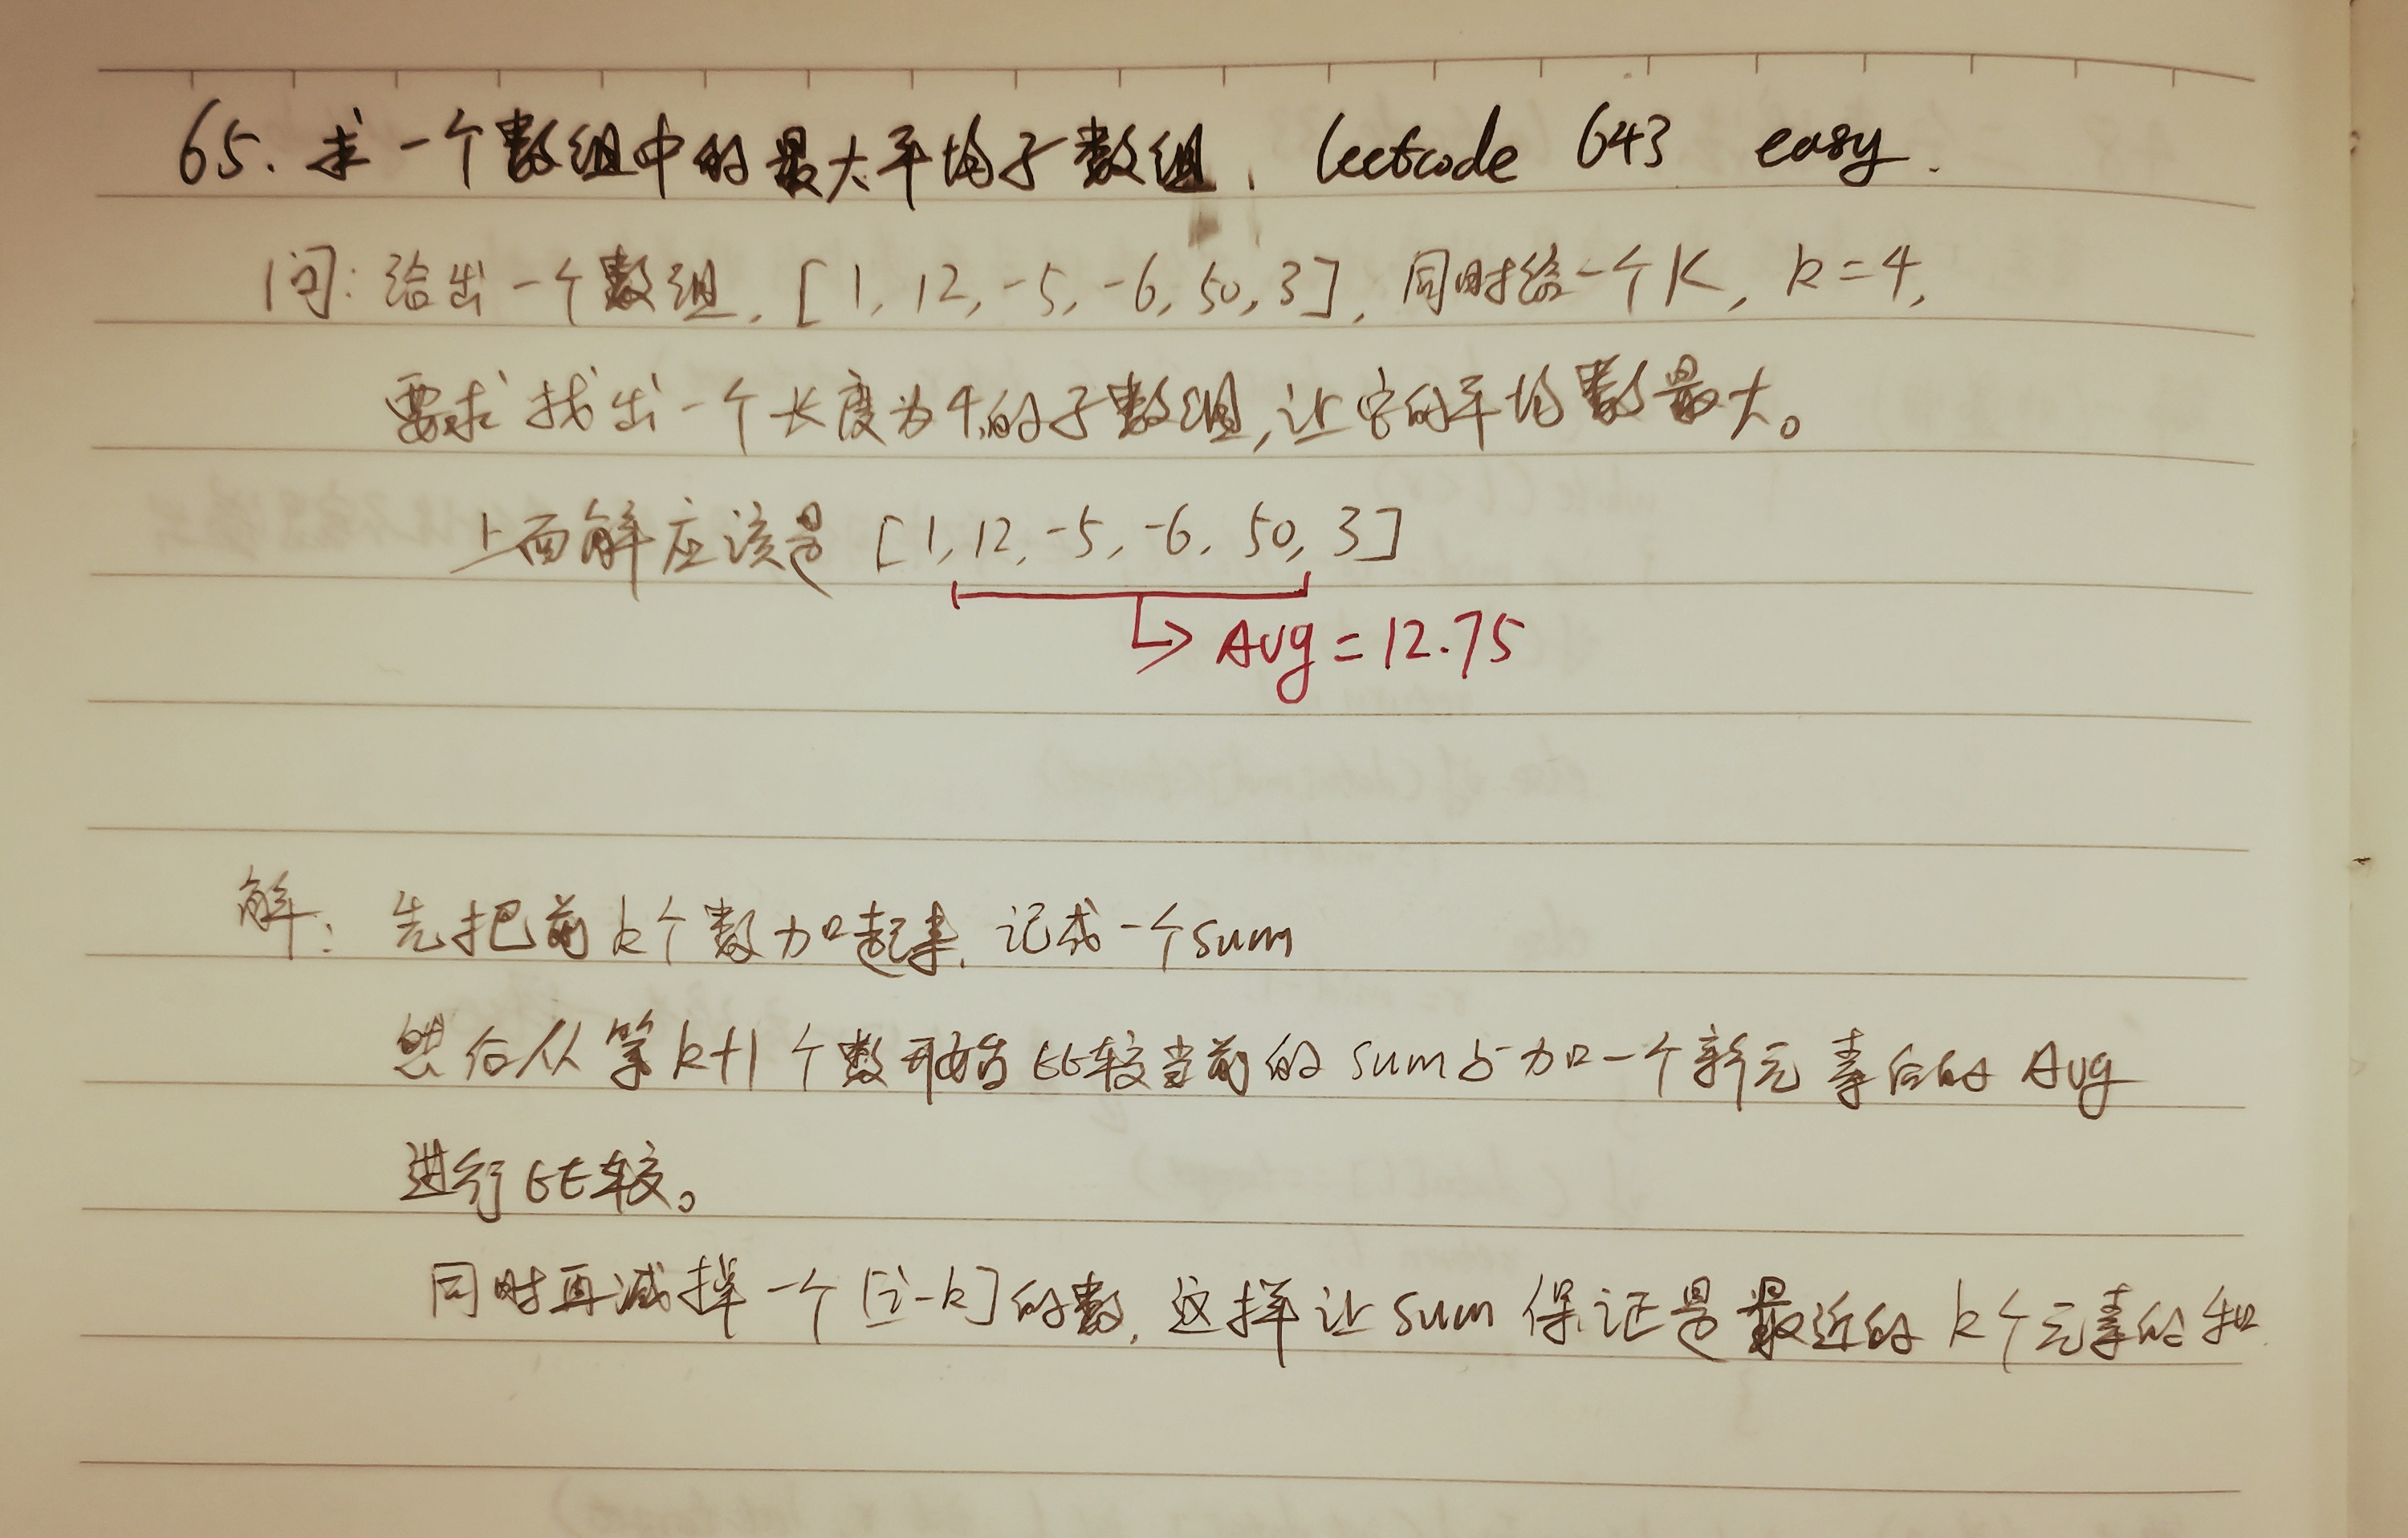 65. 求一个数组中的最大平均子数组. leetcode 643 easy.
问: 给出一个数组, [1, 12, -5, -6, 50, 3], 同时给一个K, k=4,
要求找出一个长度为4的子数组,让它的平均数最大。
上面解应该是 [1, 12, -5, -6, 50, 3]
Avg = 12.75
解: 先把前k个数加起来, 记成一个sum
然后从第k+1个数开始比较当前的sum与加一个新元素后的Avg
进行比较。
同时再减掉一个[i-k]的数, 这样让sum保证是最近的k个元素的和.